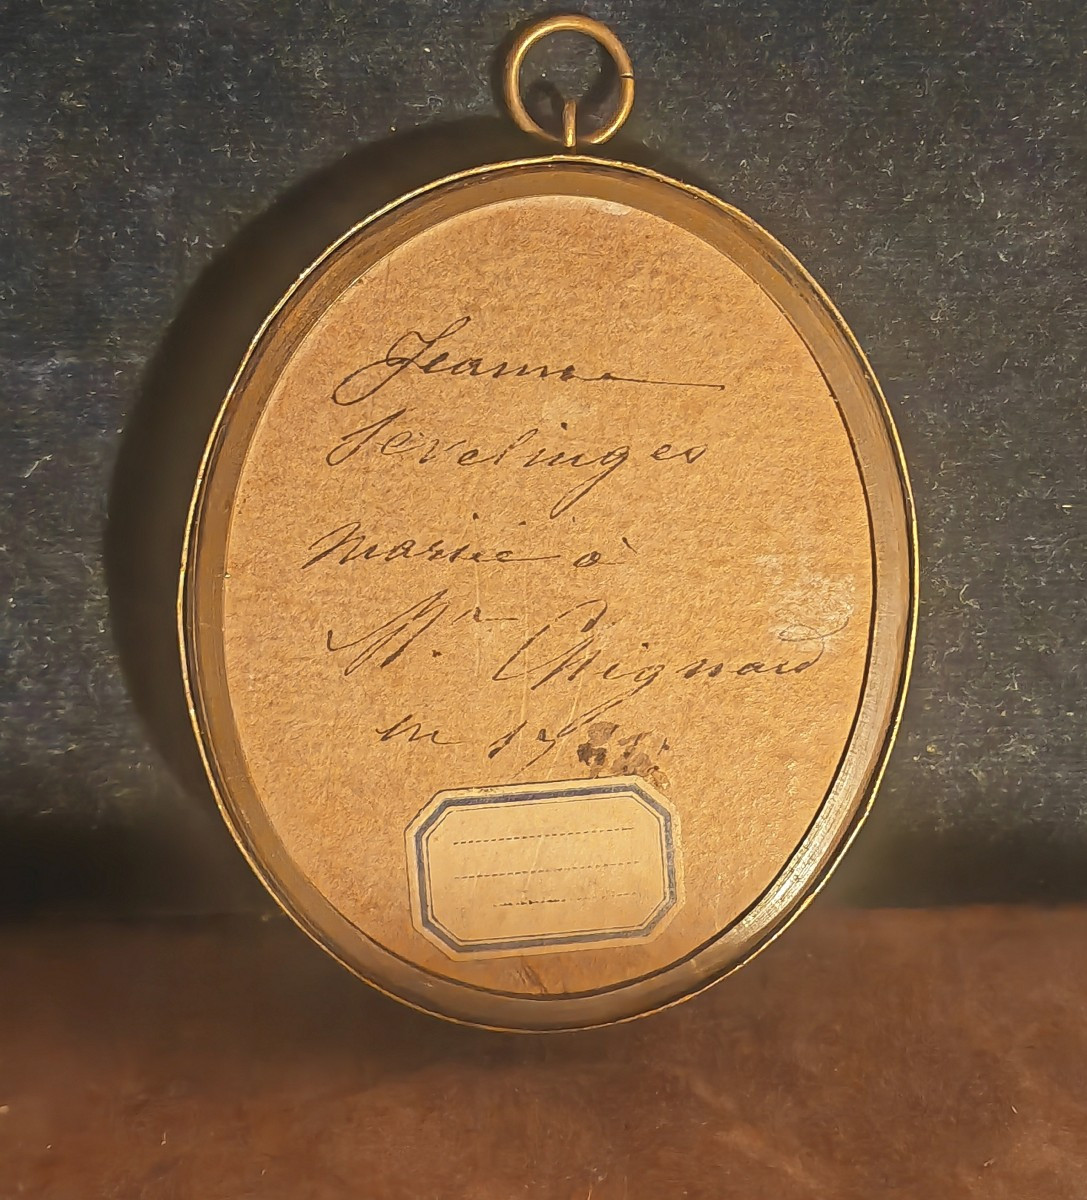 Jeanne
Sevelinges
mariée à
Mr Chignard
en